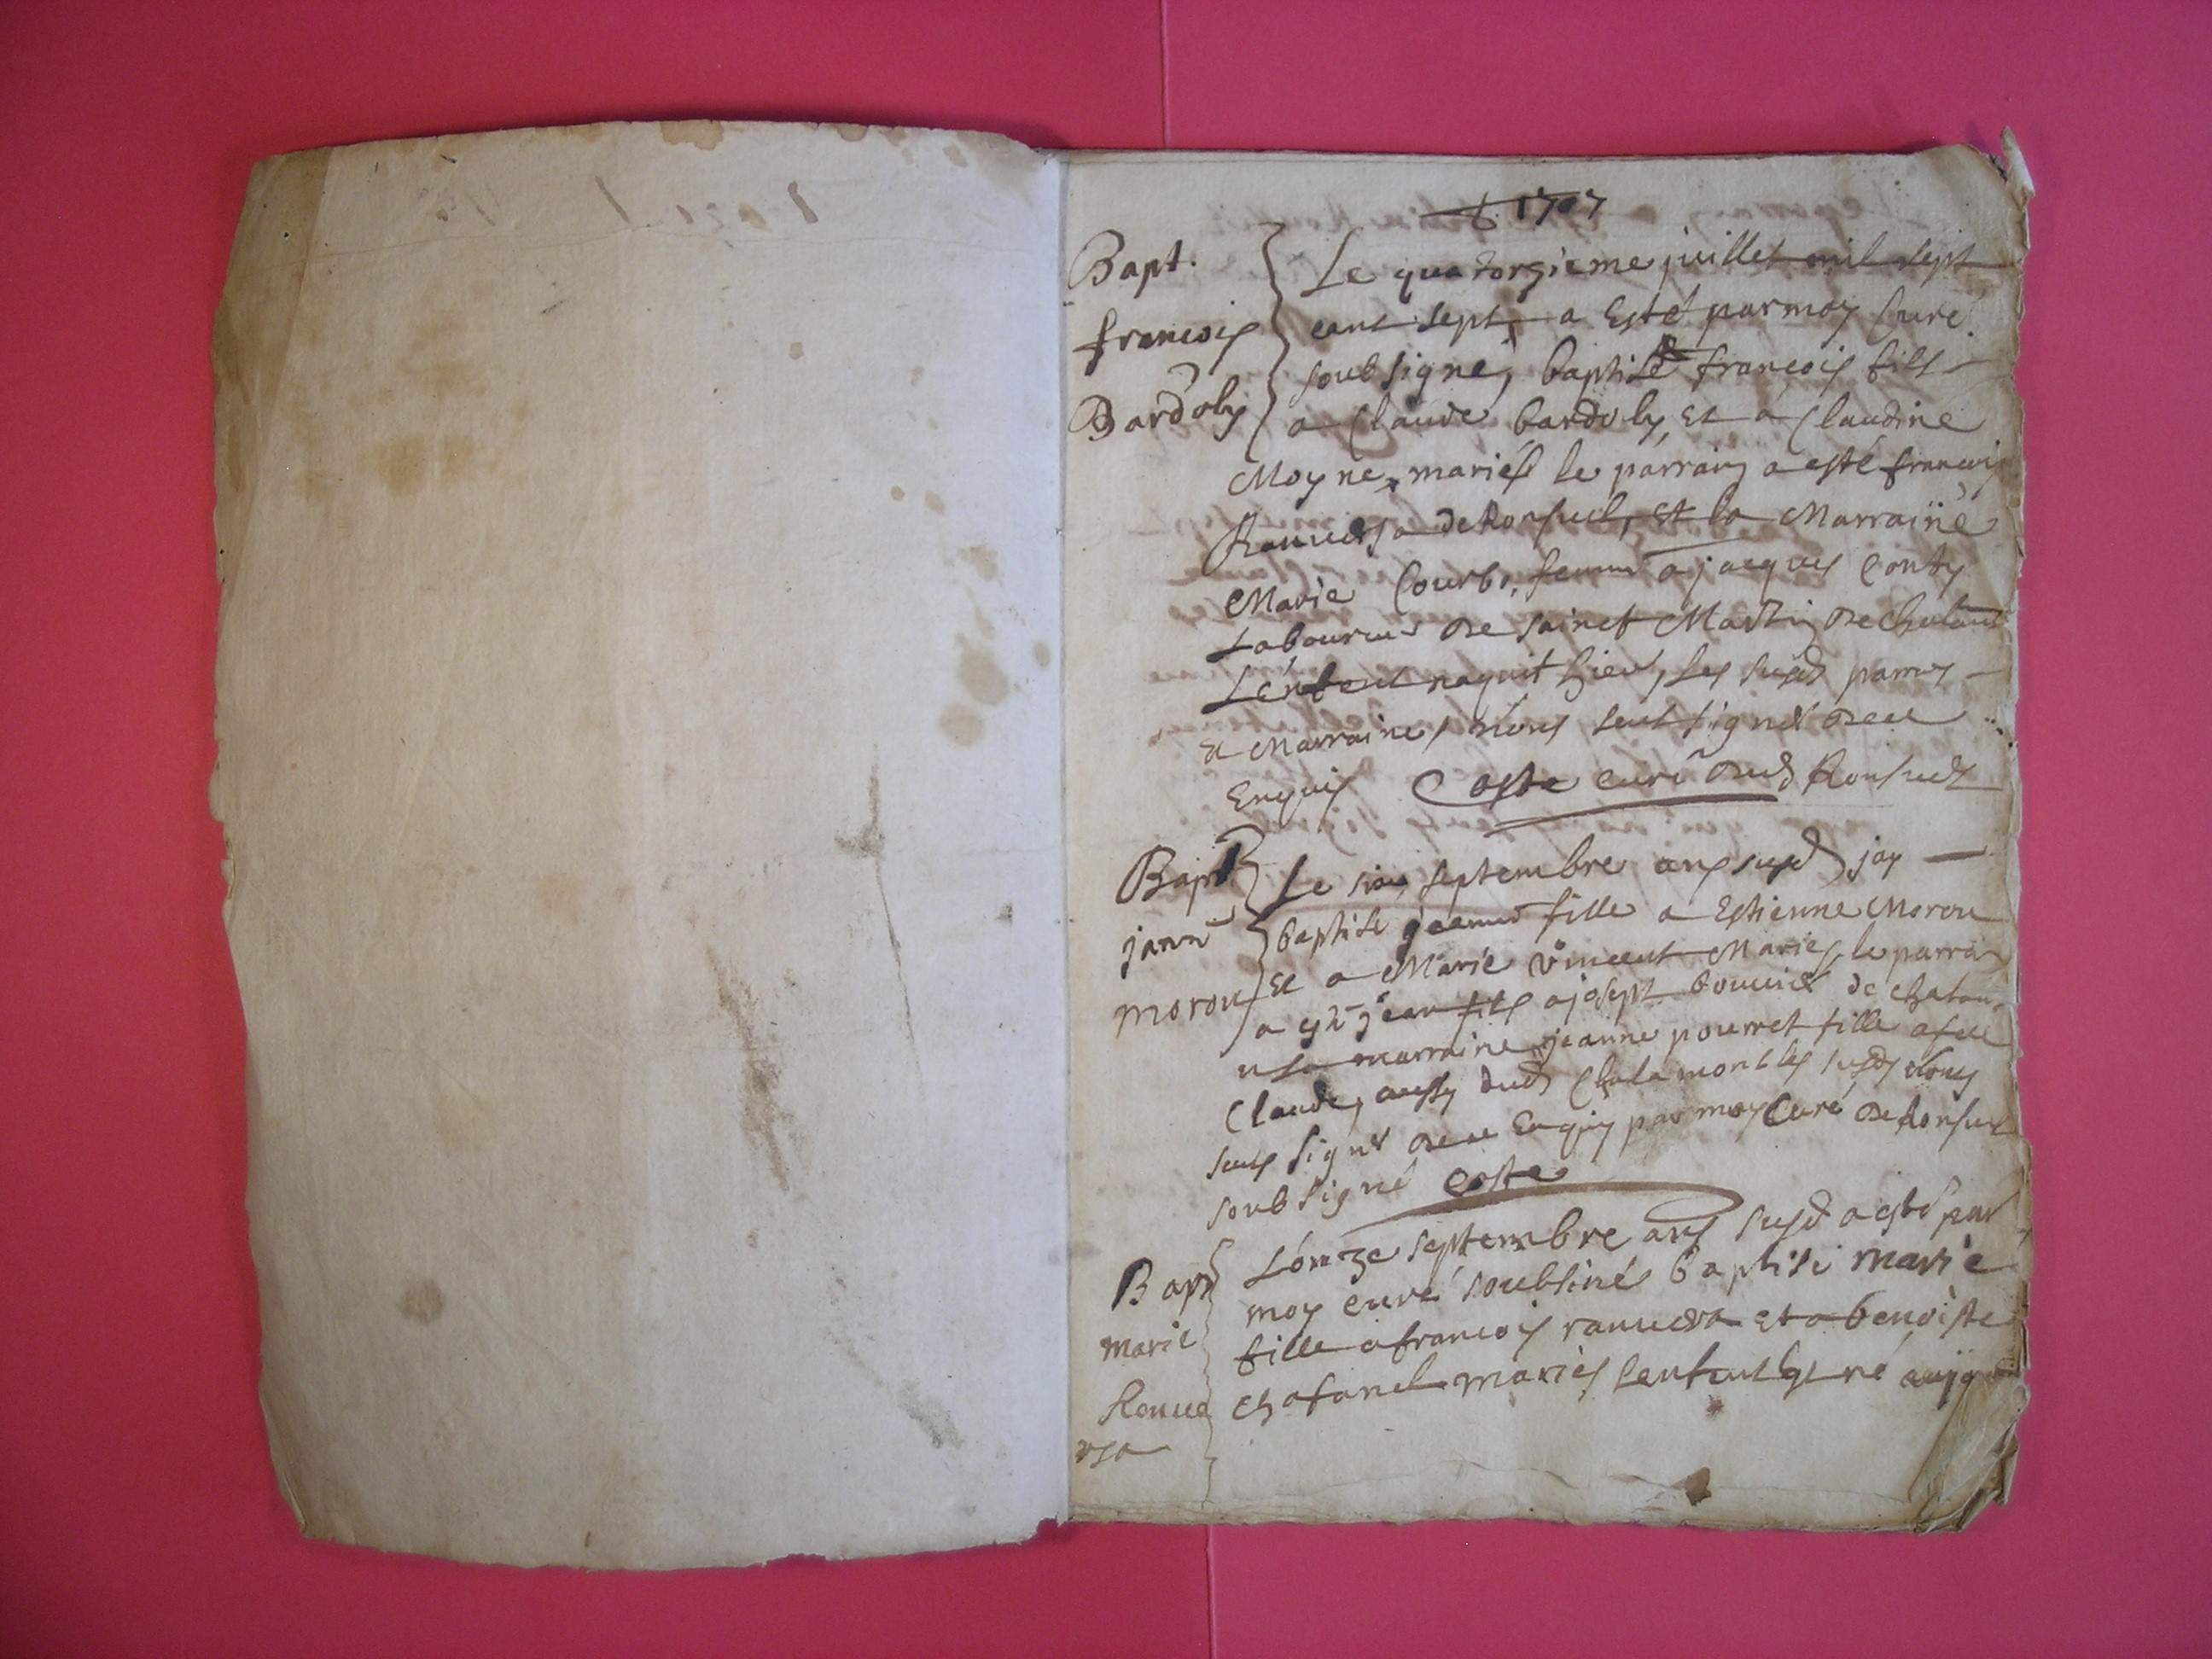 1707
Bapt.
francois
Bardoly
Le quatorzieme juillet mil sept
cent sept, a Esté par moy Curé
soubsigné, baptisé francois fils
a Claude bardoly, Et a Claudine
Moyne, mariés le parrain a esté francois
Rauuersa de Ronsuel, et la Marraine
Marie Courbo, femme a jacques Conty
Laboureur de sainct Martin de Chalamont
L'enfant naquit hier, les susd parrin
et Marraine, nons seut signer de ce
Enquis Coste curé dud Ronsuel
Bapt
jann
moron
Le six septembre ans susd jay
baptisé jeanne fille a Estienne Moron
Et a Marie vincent Mariés, le parrain
a esté jean fils a joseph bouuier de
la marraine jeanne pourret fille a feu
Claude, aussy dud Chalamont les susds nons
seus signer de ce Enquis par moy Curé de Ronsuel
soubsigné Coste
Bapt
marie
Rauue
rsa
L'onze septembre ans susd a esté par
moy curé soubsiné baptisé marie
fille a francois rauuersa et a benoiste
chafanel mariés lenfant est né